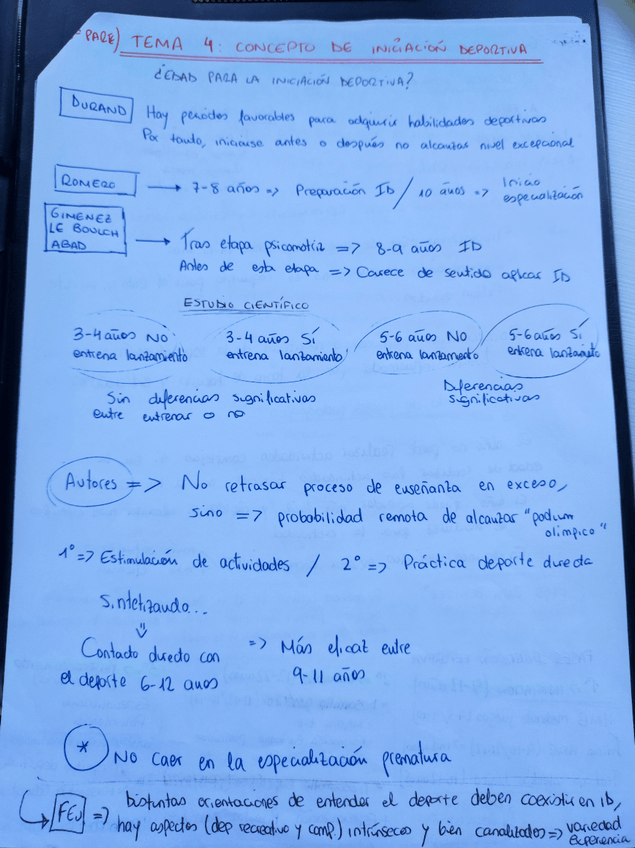 PARE) TEMA 4: CONCEPTO DE INICIACIÓN DEPORTIVA
¿EDAD PARA LA INICIACIÓN DEPORTIVA?
DURAND
Hay periodos favorables para adquirir habilidades deportivas
Por tanto, iniciarse antes o después no alcanzas nivel excepcional
ROMERO → 7-8 años => Preparación ID / 10 años => Inicio
especialización
GIMENEZ
LE BOULCH
ABAD
→ Tras etapa psicomotriz => 8-9 años ID
Antes de esta etapa => Carece de sentido aplicar ID
ESTUDIO CIENTÍFICO
3-4 años NO
entrena lanzamiento
3-4 años SÍ
entrena lanzamiento
5-6 años NO
entrena lanzamiento
5-6 años SÍ
entrena lanzamiento
Sin diferencias significativas
entre entrenar o no
Diferencias
significativas
Autores => No retrasar proceso de enseñanza en exceso,
sino => probabilidad remota de alcanzar "podium
olímpico"
1º => Estimulación de actividades / 2º => Práctica deporte directa
Sintetizando...
Contacto directo con
el deporte 6-12 años
=> Más eficaz entre
9-11 años
* No caer en la especialización prematura
FEJ => Distintas orientaciones de entender el deporte deben coexistir en ID,
hay aspectos (dep recreativo y comp) intrínsecos y bien canalizados => variedad
experiencia